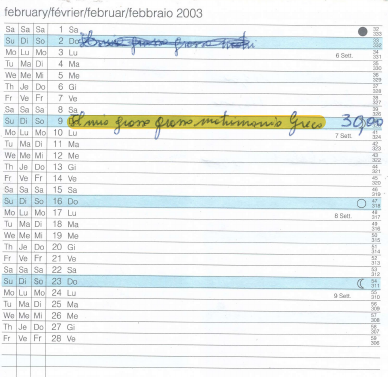 february/février/februar/febbraio 2003
Sa Sa Sa 1 Sa 32 333
Su Di So 2 Do Il mio grosso grosso matri
Mo Lu Mo 3 Lu 6 Sett. 34 331
Tu Ma Di 4 Ma
We Me Mi 5 Me
Th Je Do 6 Gi
Fr Ve Fr 7 Ve
Sa Sa Sa 8 Sa
Su Di So 9 Il mio grosso grosso matrimonio Greco 30,00
Mo Lu Mo 10 Lu 7 Sett. 41 324
Tu Ma Di 11 Ma 42 323
We Me Mi 12 Me 43 322
Th Je Do 13 Gi 44 321
Fr Ve Fr 14 Ve 45 320
Sa Sa Sa 15 Sa 46 319
Su Di So 16 Do 47 318
Mo Lu Mo 17 Lu 8 Sett. 48 317
Tu Ma Di 18 Ma 49 316
We Me Mi 19 Me 50 315
Th Je Do 20 Gi 51 314
Fr Ve Fr 21 Ve 52 313
Sa Sa Sa 22 Sa 53 312
Su Di So 23 Do 54 311
Mo Lu Mo 24 Lu 9 Sett. 55 310
Tu Ma Di 25 Ma 56 309
We Me Mi 26 Me 57 308
Th Je Do 27 Gi 58 307
Fr Ve Fr 28 Ve 59 306